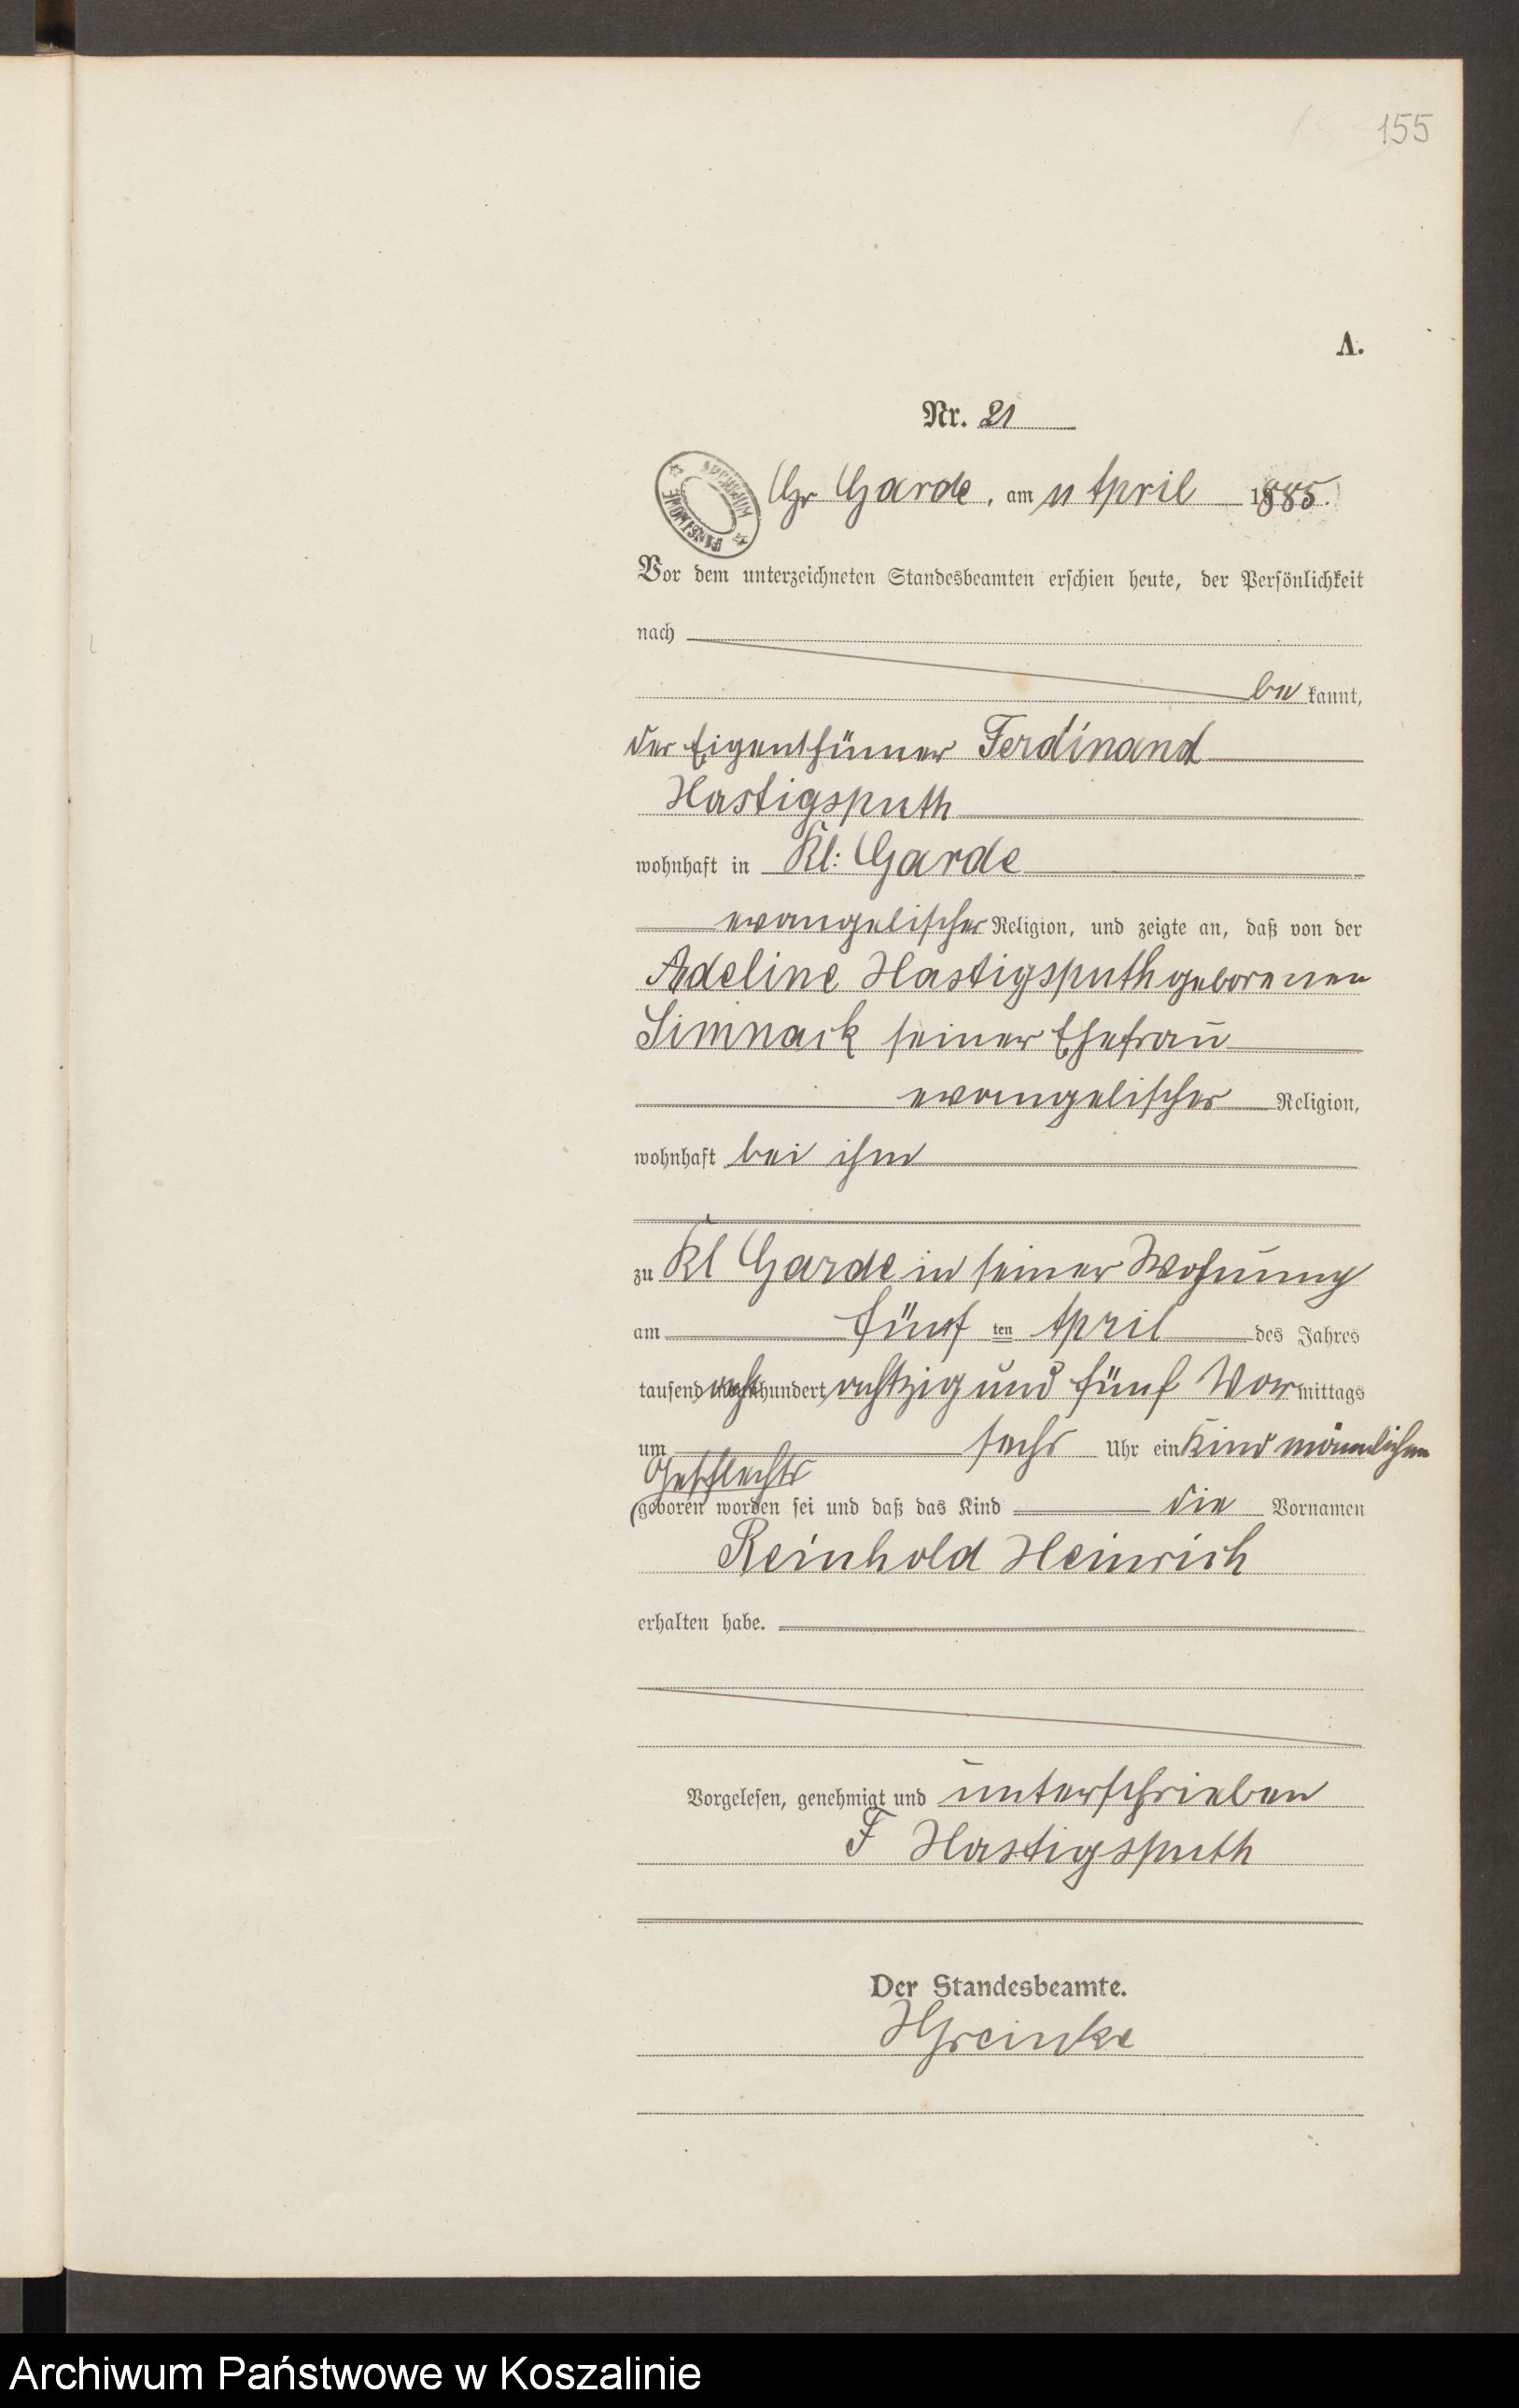 155
A.
Nr. 21
ARCHIWUM PAŃSTWOWE
Gr Garde, am 11 April 1885.
Vor dem unterzeichneten Standesbeamten erschien heute, der Persönlichkeit
nach
be kannt,
der Eigenthümer Ferdinand
Hastigsputh
wohnhaft in Kl: Garde
evangelischer Religion, und zeigte an, daß von der
Adeline Hastigsputh geborenen
Simnack seiner Ehefrau
evangelischer Religion,
wohnhaft bei ihm
zu Kl Garde in seiner Wohnung
am fünf ten April des Jahres
tausend acht hundert achtzig und fünf Vor mittags
um sechs Uhr ein Kind männlichen
Geschlechts
geboren worden sei und daß das Kind die Vornamen
Reinhold Heinrich
erhalten habe.
Vorgelesen, genehmigt und unterschrieben
F Hastigsputh
Der Standesbeamte.
HGreinke
Archiwum Państwowe w Koszalinie